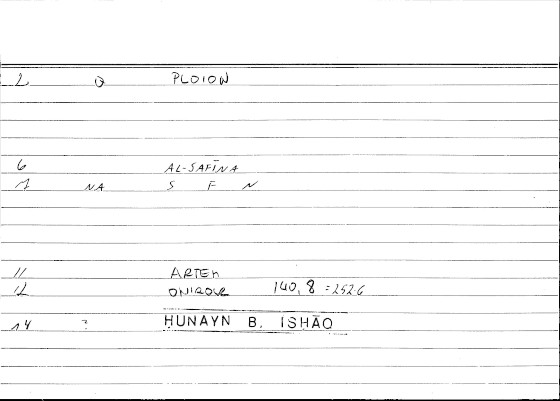 2 Q PLOION
6 AL-SAFĪNA
7 NA S F N
11 ARTEM
12 ONIROCR 140, 8 = 252.6
14 ? HUNAYN B. ISHĀQ